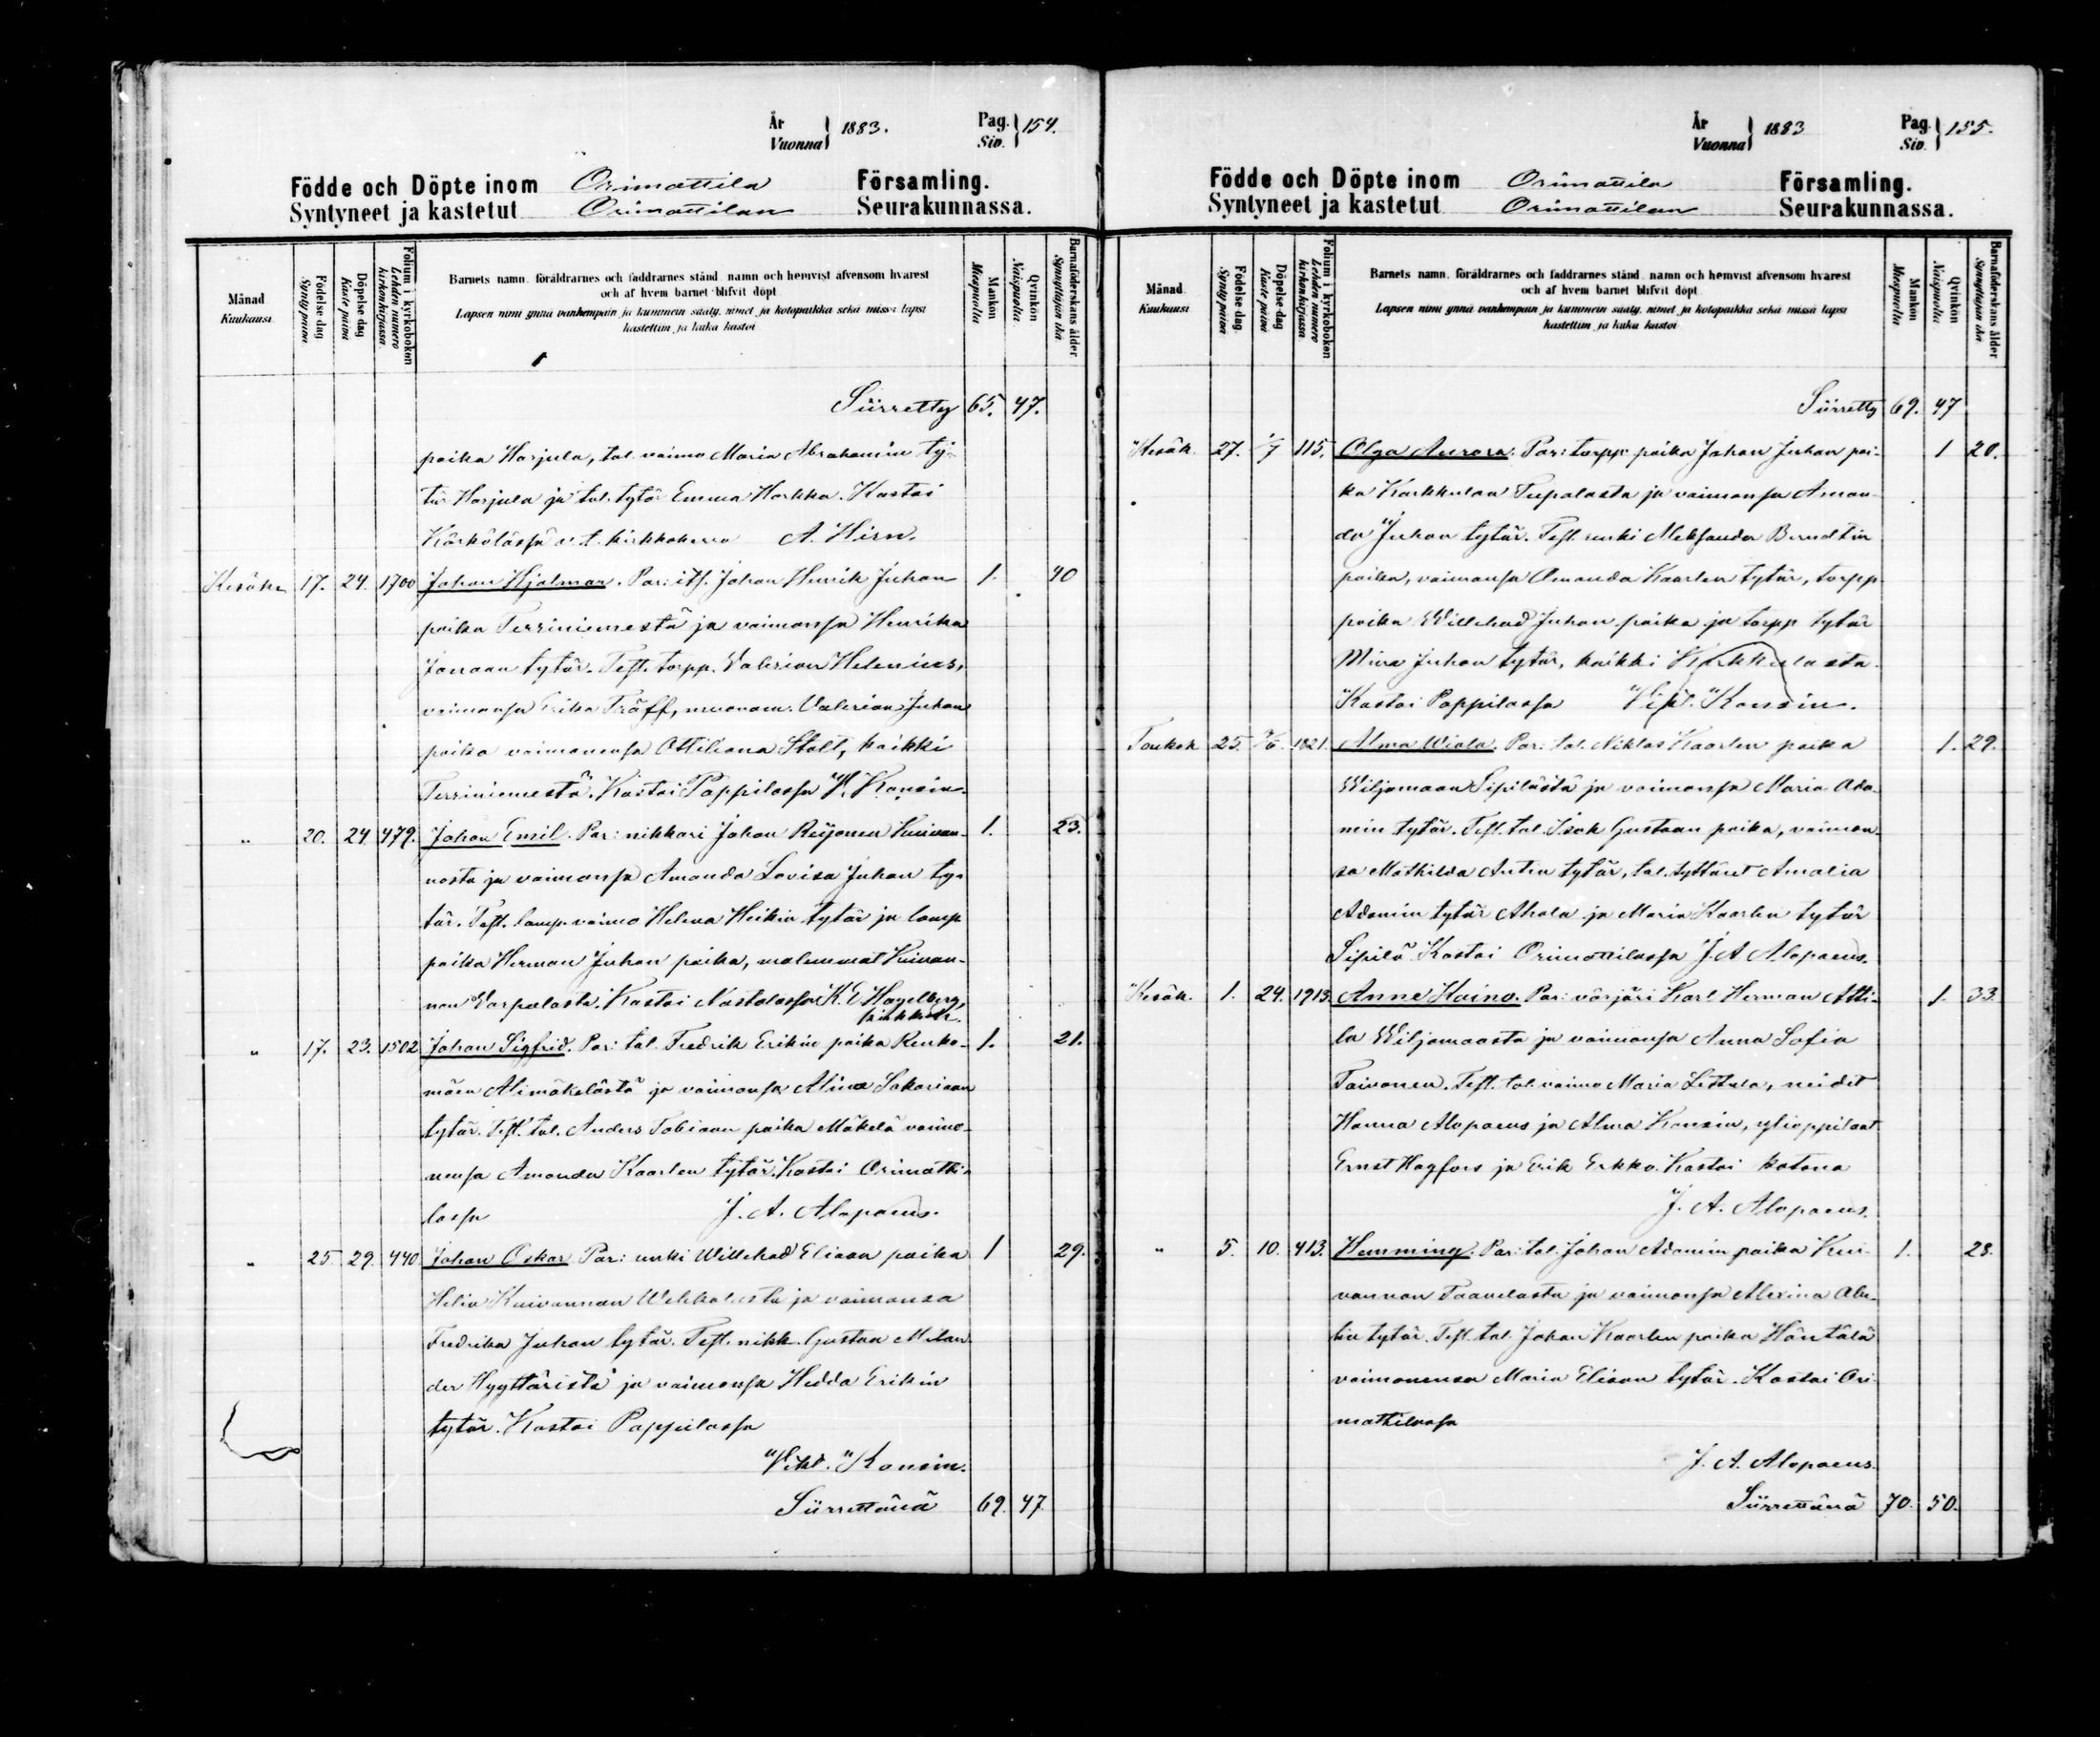 År
Vuonna } 1883.
Pag.
Siv. } 154.
Födde och Döpte inom Orimattila Församling.
Syntyneet ja kastetut Orimattilan Seurakunnassa.
Månad
Kuukausi
Födelse dag
Synty päivä
Döpelse dag
Kaste päivä
Folium i kyrkoboken
Lehden numero kirkonkirjassa
Barnets namn, föräldrarnes och faddrarnes stånd, namn och hemvist äfvensom hvarest
och af hvem barnet blifvit döpt
Lapsen nimi ynnä vanhempain ja kummein sääty, nimet ja kotopaikka sekä missä lapsi
kastettiin ja kuka kastoi
Mankön
Miespuolia
Qvinkön
Naispuolia
Barnaföderskans ålder
Synnyttäjän ikä
Siirretty 65. 47.
poika Harjula, tal. vaimo Maria Abrahamin ty-
tär Harjula ja tal. tytär Emma Harkka. Kastoi
Kärkölässä v. t. kirkkoherra A. Hirn.
Kesäk. 17. 24. 1700 Johan Hjalmar. Par: its. Johan Henrik Juhan 1. 40
poika Terriniemestä ja vaimonsa Henrika
Jonaan tytär. Test. torpp. Valerian Helenius,
vaimonsa Erika Träff, Valerian Juhan
poika vaimonensa Ottiliana Stolt, kaikki
Terriniemestä. Kastoi Pappilassa V. Konsin.
" 20. 24. 479. Johan Emil. Par: nikkari Johan Reijonen Kuivan- 1. 23.
nosta ja vaimonsa Amanda Lovisa Juhan ty-
tär. Test. lamp. vaimo Helena Heikin tytär ja lamp.
poika Herman Juhan poika, molemmat Kuivan-
non Varpalasta. Kastoi Nastolassa K. E. Hagelberg,
kirkkoh.
" 17. 23. 1502 Johan Sigfrid. Par: tal. Fredrik Erikin poika Renko- 1. 21.
mäen Alimäkelästä ja vaimonsa Alina Sakariaan
tytär. Test. tal. Anders Tobiaan poika Mäkelä vaimo-
nensa Amanda Kaarlen tytär. Kastoi Orimatti-
lassa J. A. Alopaeus.
" 25. 29. 440. Johan Oskar. Par: renki Willehad Eliaan poika 1 29.
Helin Kuivannon Wehkalasta ja vaimonsa
Fredrika Juhan tytär. Test. nikk. Gustaa Milan-
der Hyyttäristä ja vaimonsa Hedda Erikin
tytär. Kastoi Pappilassa
Vikt. Konsin.
Siirrettävä 69. 47.
År
Vuonna } 1883
Pag.
Siv. } 155.
Födde och Döpte inom Orimattila Församling.
Syntyneet ja kastetut Orimattilan Seurakunnassa.
Månad
Kuukausi
Födelse dag
Synty päivä
Döpelse dag
Kaste päivä
Folium i kyrkoboken
Lehden numero kirkonkirjassa
Barnets namn, föräldrarnes och faddrarnes stånd, namn och hemvist äfvensom hvarest
och af hvem barnet blifvit döpt
Lapsen nimi ynnä vanhempain ja kummein sääty, nimet ja kotopaikka sekä missä lapsi
kastettiin ja kuka kastoi
Mankön
Miespuolia
Qvinkön
Naispuolia
Barnaföderskans ålder
Synnyttäjän ikä
Siirretty 69. 47
Kesäk. 27. 1/7 115. Olga Aurora. Par: torpp. poika Johan Juhan poi- 1 20.
ka Karkkulan Tupalasta ja vaimonsa Aman-
da Juhan tytär. Test. renki Aleksander Berndtin
poika, vaimonsa Amanda Kaarlen tytär, torpp.
poika Willehad Juhan poika ja torpp. tytär
Mina Juhan tytär, kaikki Karkkulasta.
Kastoi Pappilassa Vikt. Konsin.
Toukok. 25. 3/6. 1821. Alma Wiola. Par: tal. Niklas Kaarlen poika 1. 29.
Wiljamaan Sipilästä ja vaimonsa Maria Ada-
min tytär. Test. tal. Isak Gustaan poika, vaimon-
sa Mathilda Antin tytär, tal. tyttäret Amalia
Adamin tytär Ahola ja Maria Kaarlen tytär
Sipilä. Kastoi Orimattilassa J. A. Alopaeus.
Kesäk. 1. 24. 1913. Anne Kaino. Par: värjäri Karl Herman Atti- 1. 33.
la Wiljamaasta ja vaimonsa Anna Sofia
Toivonen. Test. tal. vaimo Maria Lettula, neidet
Hanna Alopaeus ja Alma Konsin, ylioppilaat
Ernst Hagfors ja Erik Erkko. Kastoi kotona
J. A. Alopaeus.
" 5. 10. 413. Hemming. Par: tal. Johan Adamin poika Kui- 1. 28.
vannon Taavilasta ja vaimonsa Alexina Abe-
lin tytär. Test. tal. Johan Kaarlen poika Häntälä
vaimonensa Maria Eliaan tytär. Kastoi Ori-
mattilassa
J. A. Alopaeus.
Siirrettävä 70. 50.